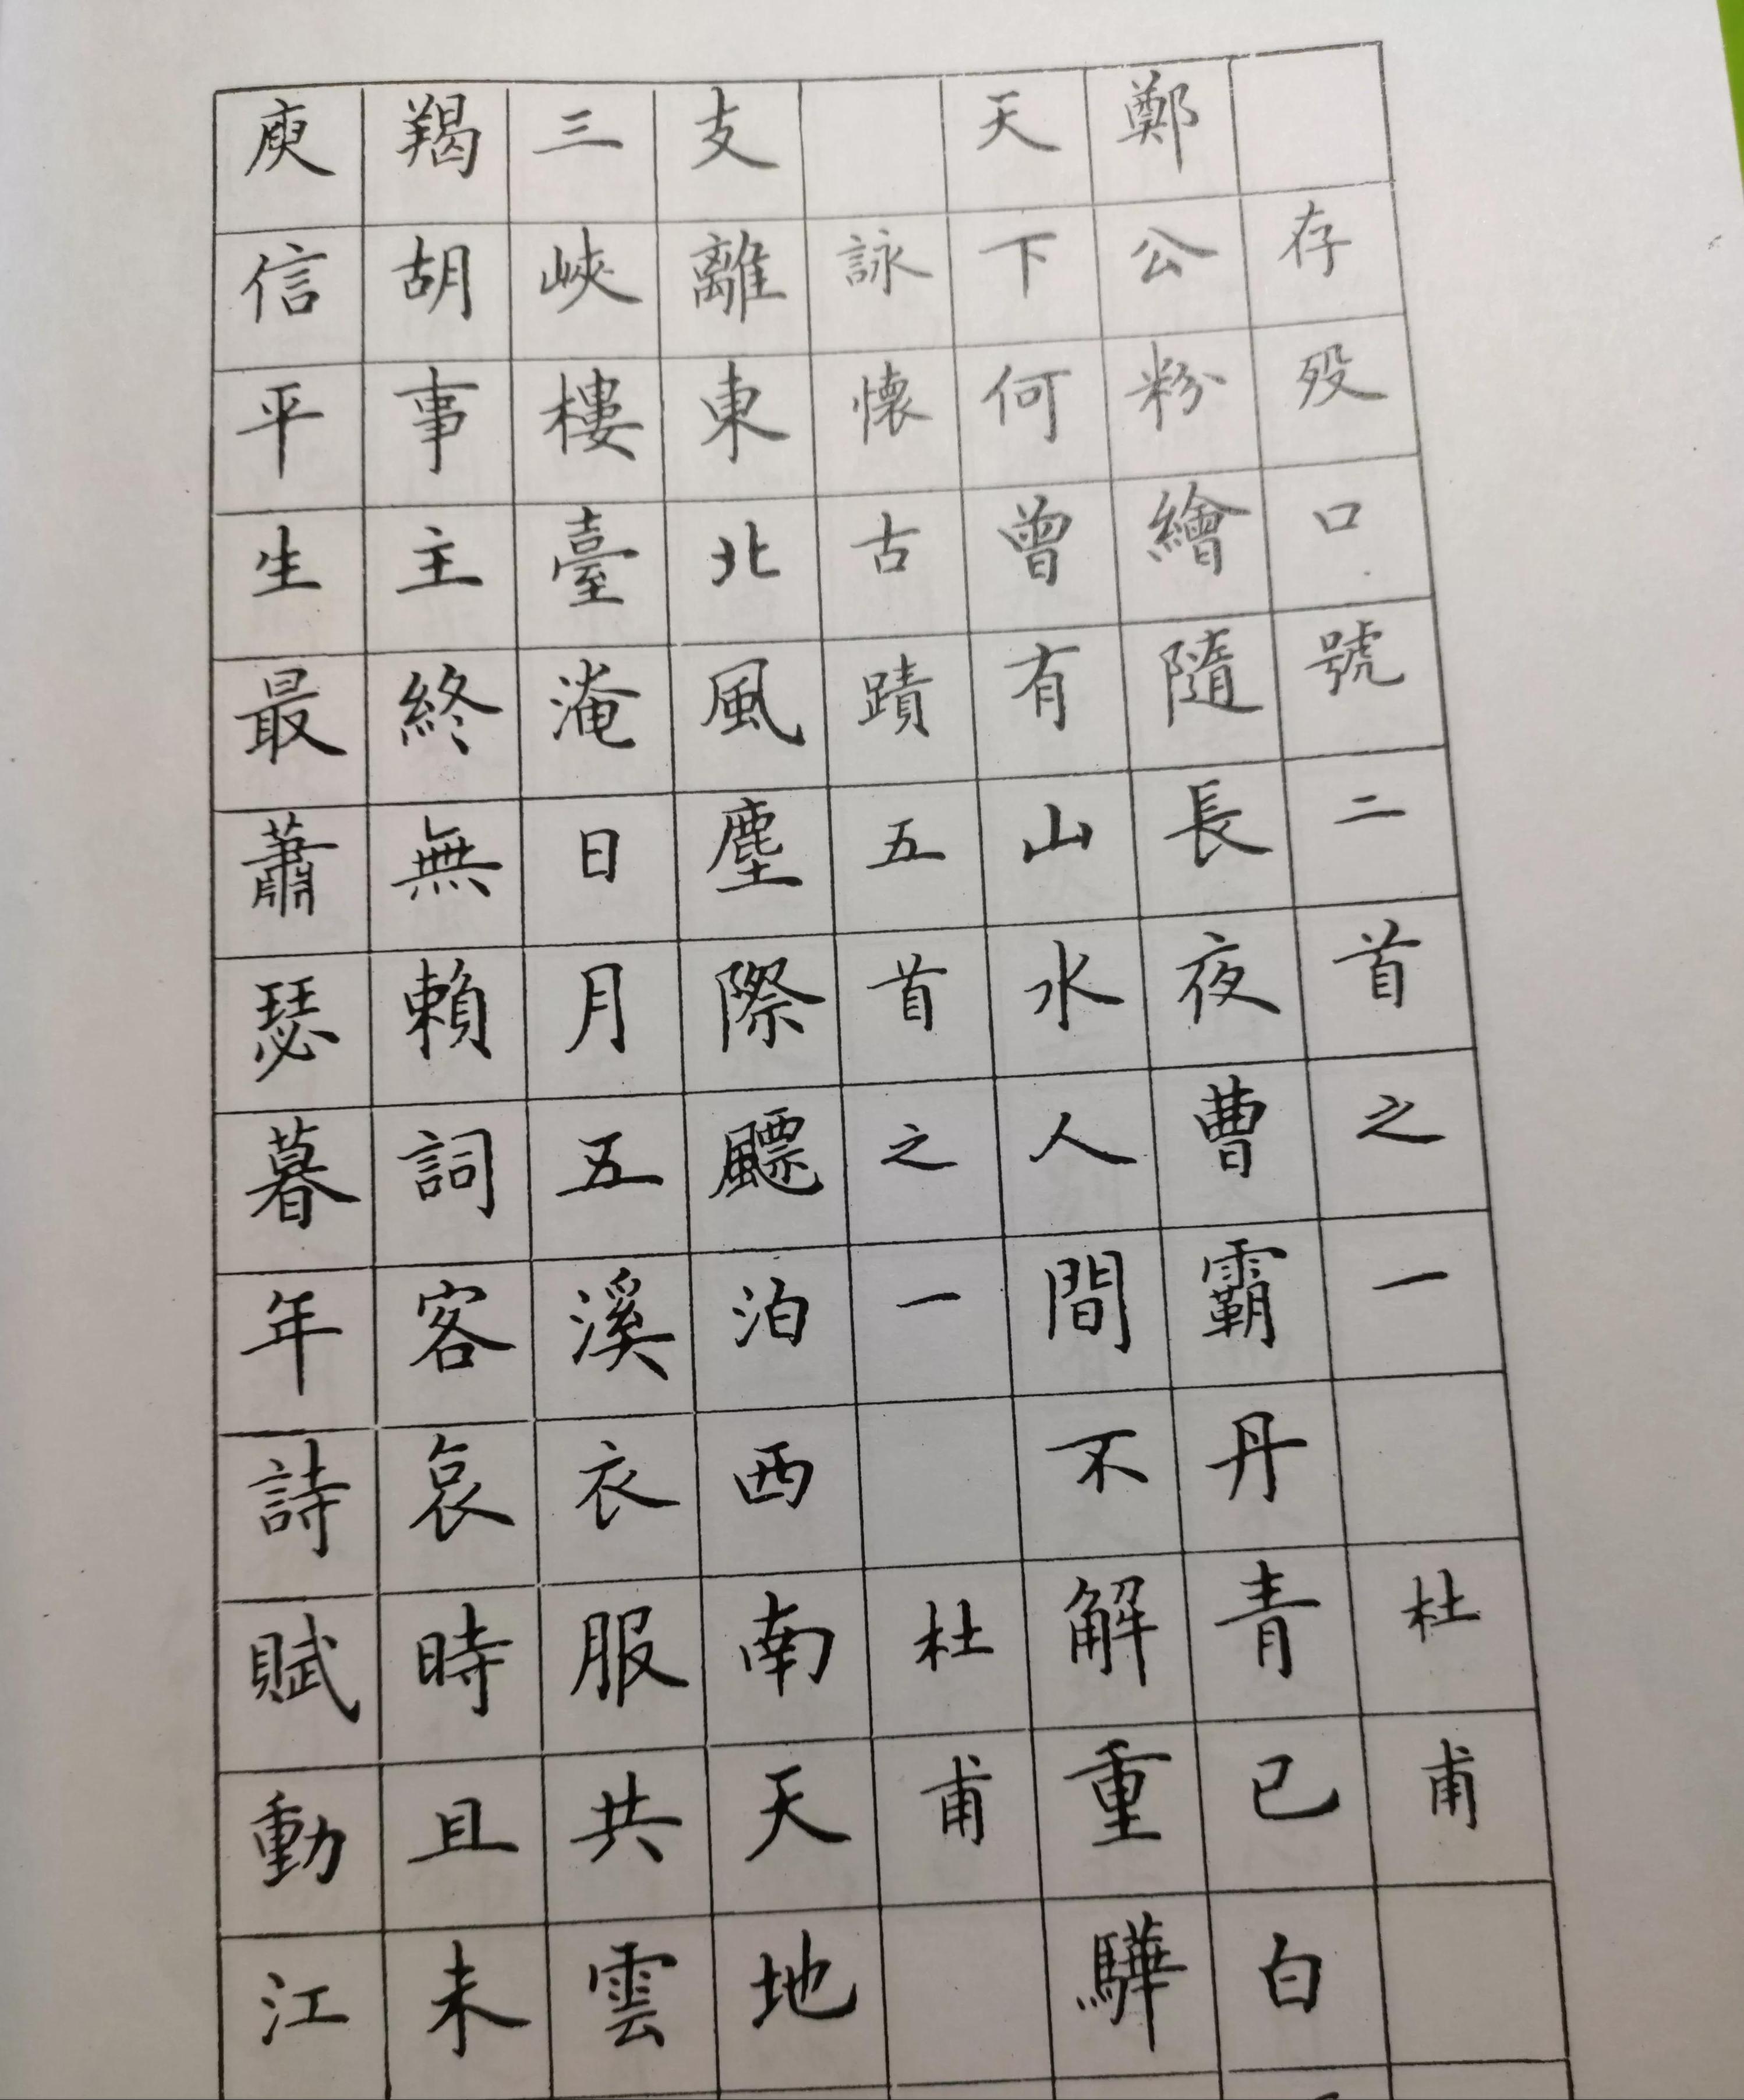 存歿口號二首之一杜甫
鄭公粉繪隨長夜曹霸丹青已白
天下何曾有山水人間不解重驊
詠懷古蹟五首之一杜甫
支離東北風塵際飄泊西南天地
三峽樓臺淹日月五溪衣服共雲
羯胡事主終無賴詞客哀時且未
庾信平生最蕭瑟暮年詩賦動江